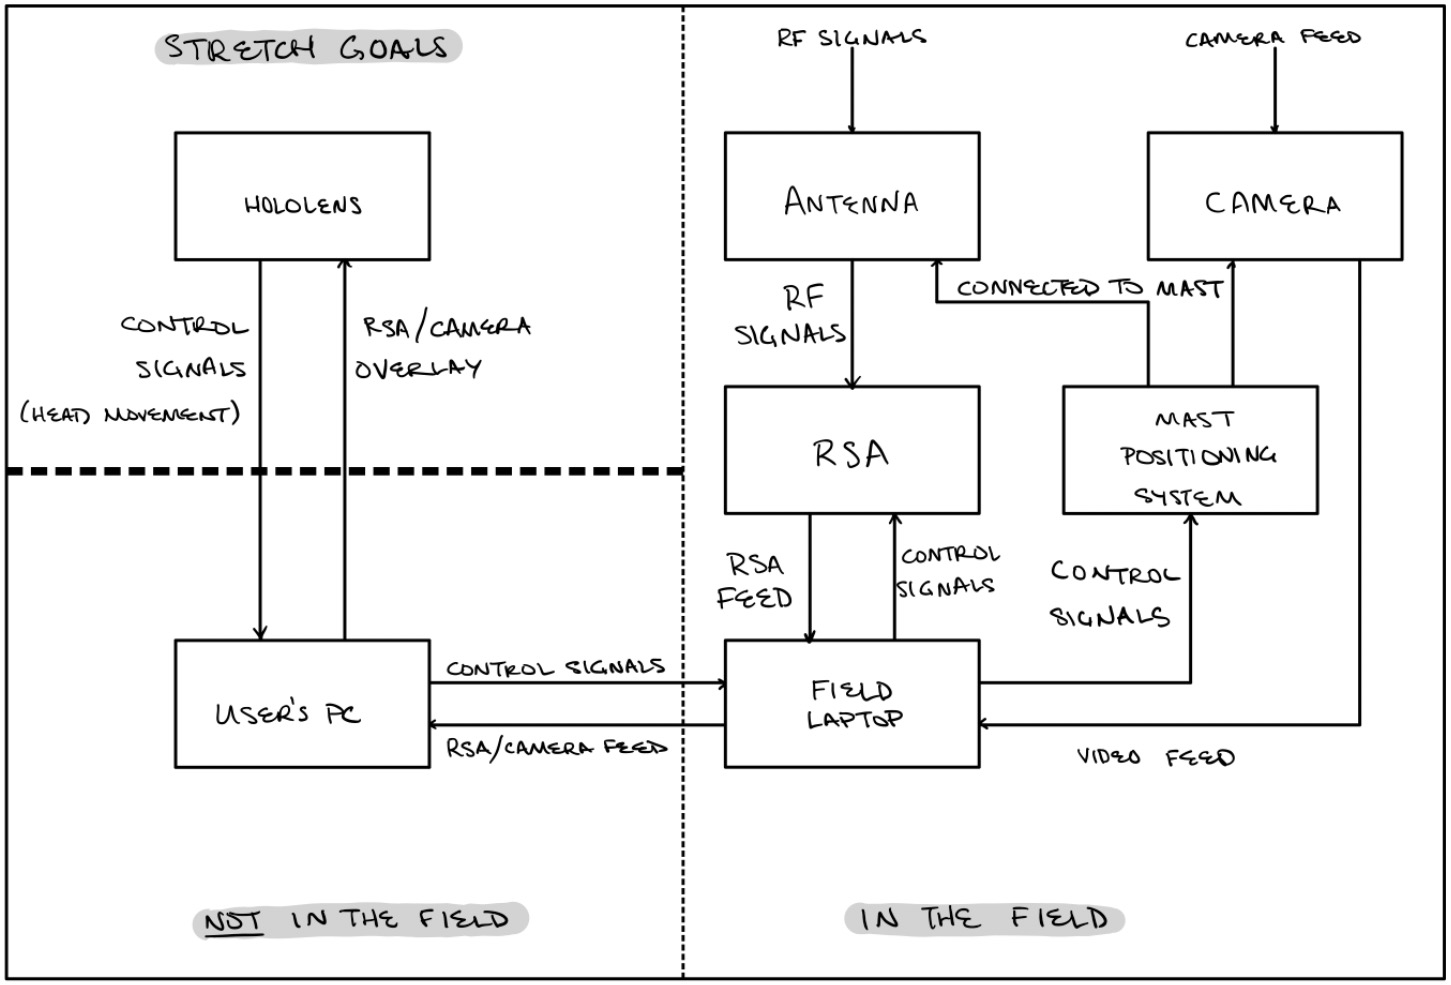 STRETCH GOALS
HOLOLENS
CONTROL
SIGNALS
(HEAD MOVEMENT)
RSA/CAMERA
OVERLAY
USER'S PC
CONTROL SIGNALS
RSA/CAMERA FEED
NOT IN THE FIELD
RF SIGNALS
CAMERA FEED
ANTENNA
CAMERA
CONNECTED TO MAST
RF
SIGNALS
RSA
MAST
POSITIONING
SYSTEM
RSA
FEED
CONTROL
SIGNALS
CONTROL
SIGNALS
FIELD
LAPTOP
VIDEO FEED
IN THE FIELD